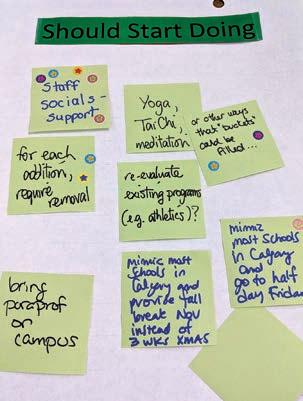 Should Start Doing
Staff
socials -
support
Yoga,
Tai Chi,
meditation
or other ways
that "buckets"
could be
filled...
for each
addition,
require removal
re-evaluate
existing programs
(e.g. athletics)?
mimic most
Schools in
Calgary and
provide fall
break Nov
instead of
3 WKS XMAS
mimic
most Schools
in Calgary
and
go to half
day Friday
bring
paraprof
on
campus